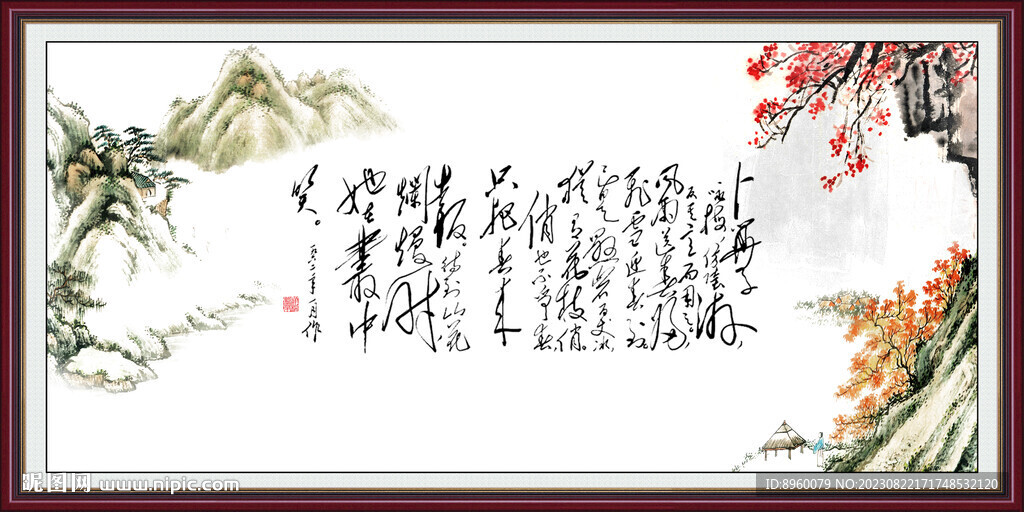 卜算子
咏梅 读陆游
反其意而用之。
风雨送春归，
飞雪迎春到。
已是悬崖百丈冰，
犹有花枝俏。
俏也不争春，
只把春来
报。待到山花
烂熳时，
她在丛中
笑。
昵图网 www.nipic.com
ID:8960079 NO:20230822171748532120